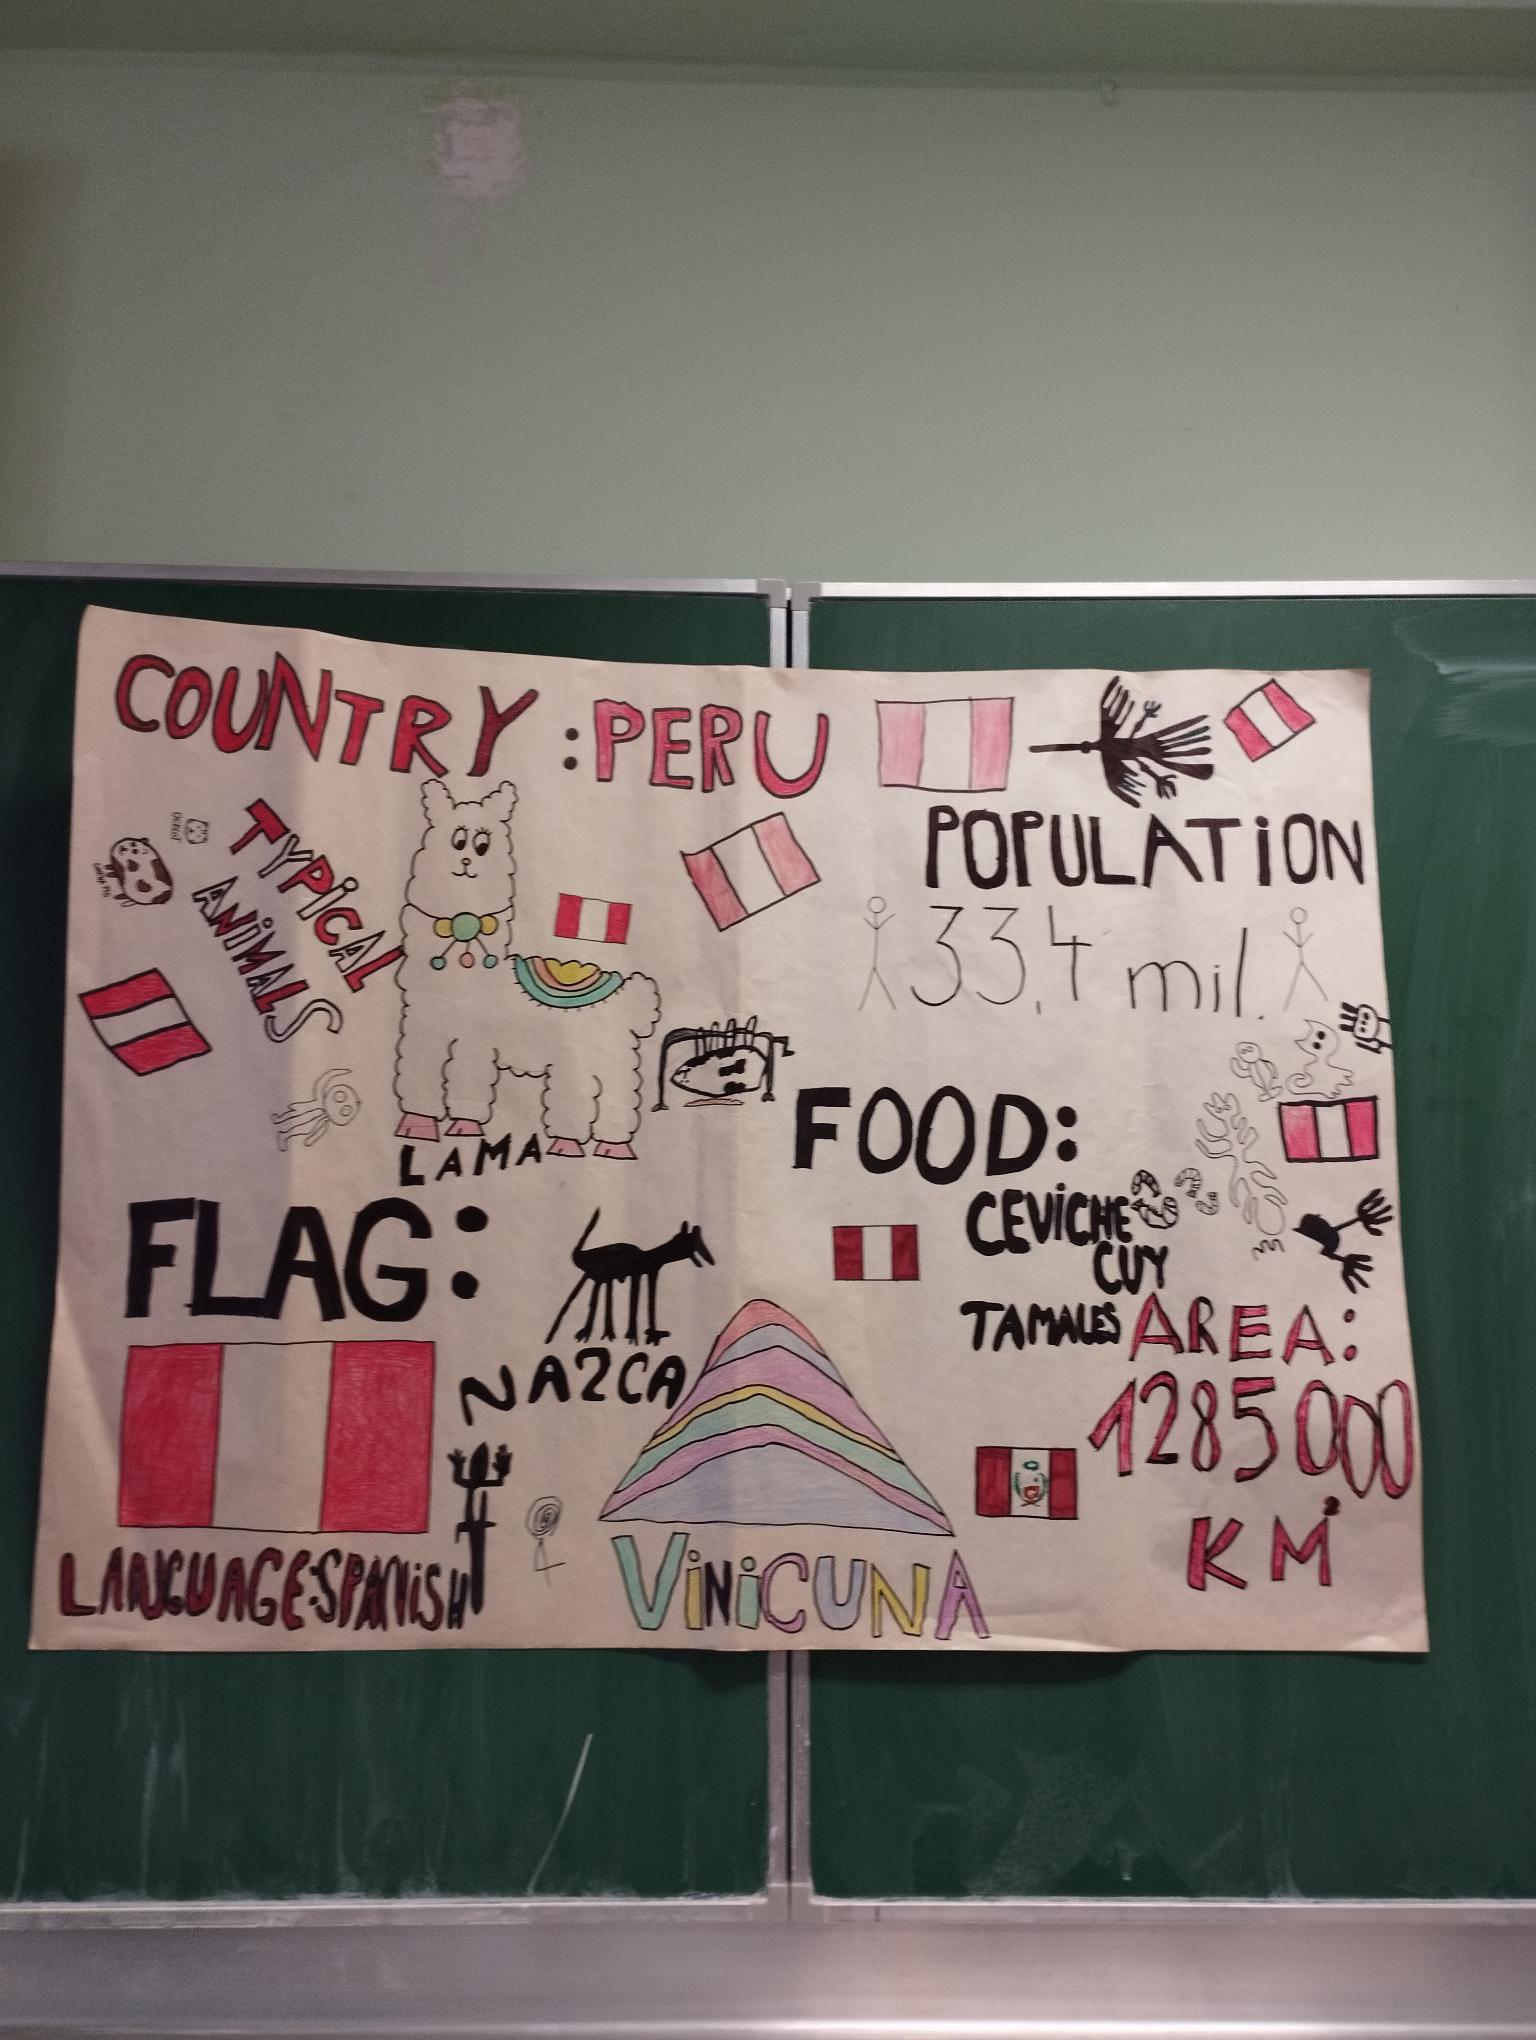 COUNTRY : PERU
TYPICAL
ANIMALS
OCELOT
GUINEA PIG
LAMA
POPULATION
33,4 mil.
FOOD:
CEVICHE
CUY
TAMALES
FLAG:
NAZCA
AREA:
1285000
KM²
LANGUAGE:SPANISH
ViNiCUNA